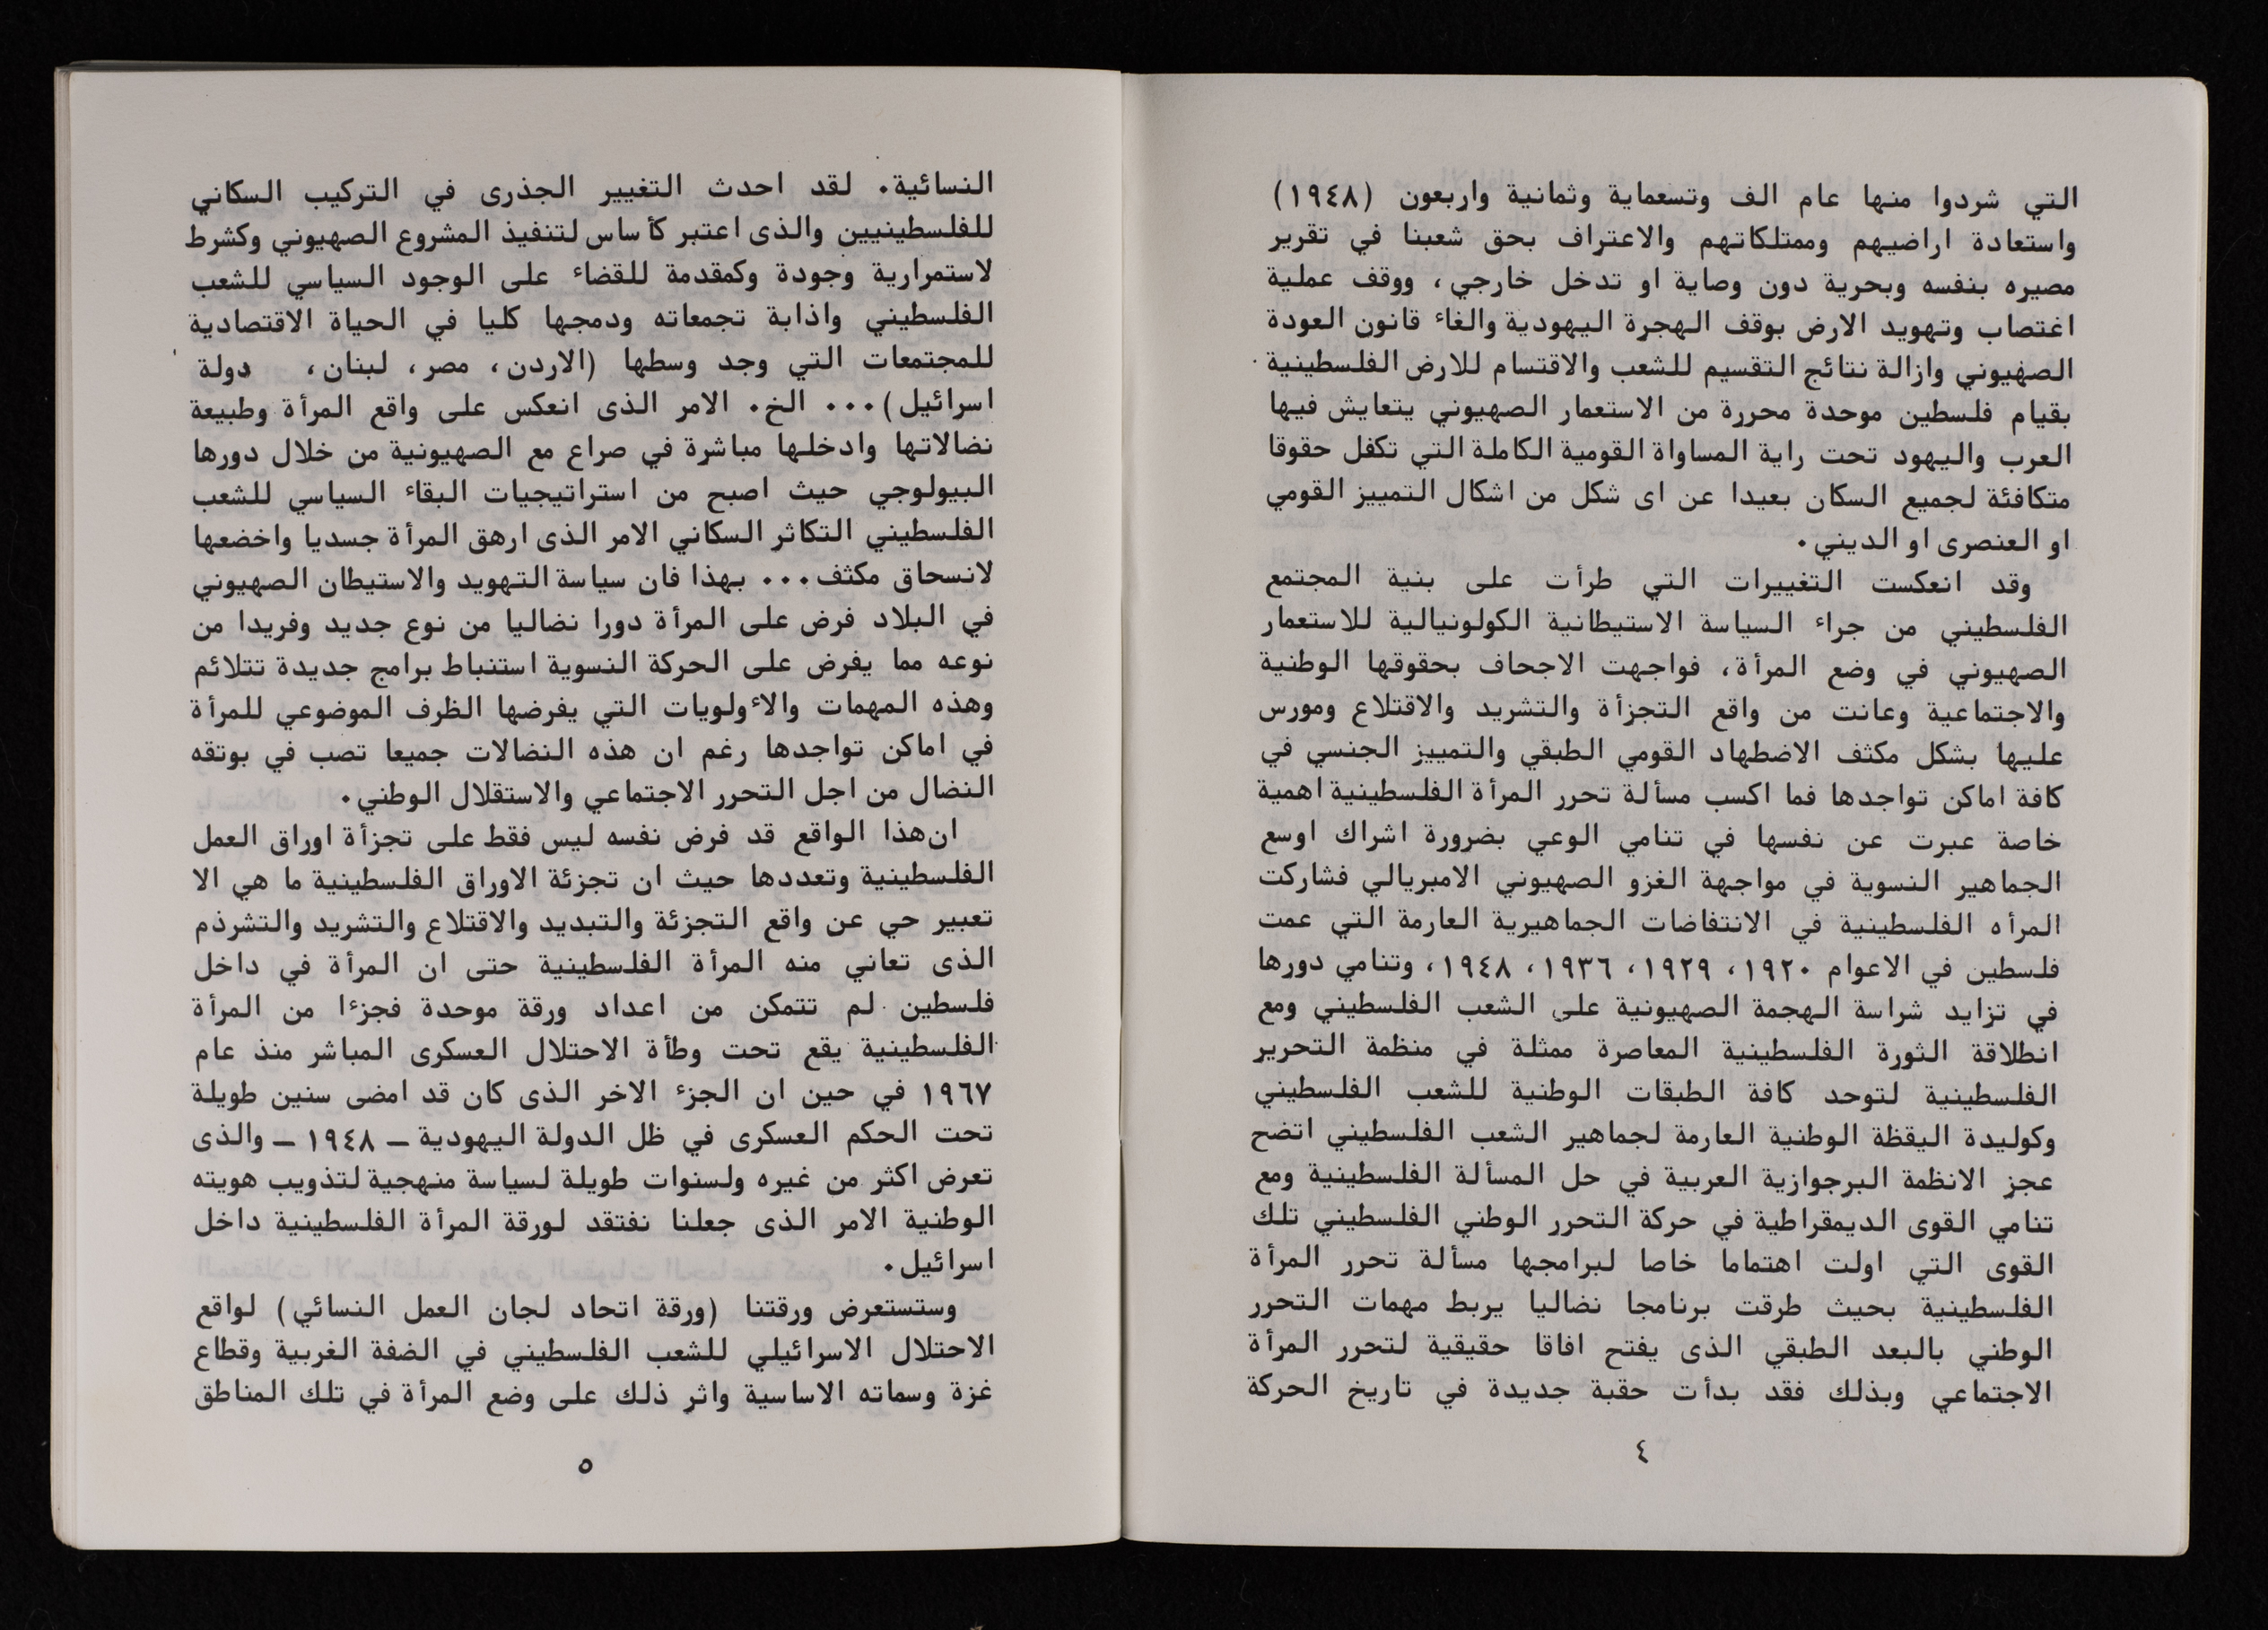 التي شردوا منها عام الف وتسعماية وثمانية واربعون (١٩٤٨)
واستعادة اراضيهم وممتلكاتهم والاعتراف بحق شعبنا في تقرير
مصيره بنفسه وبحرية دون وصاية او تدخل خارجي، ووقف عملية
اغتصاب وتهويد الارض بوقف الهجرة اليهودية والغاء قانون العودة
الصهيوني وازالة نتائج التقسيم للشعب والاقتسام للارض الفلسطينية
بقيام فلسطين موحدة محررة من الاستعمار الصهيوني يتعايش فيها
العرب واليهود تحت راية المساواة القومية الكاملة التي تكفل حقوقا
متكافئة لجميع السكان بعيدا عن اى شكل من اشكال التمييز القومي
او العنصرى او الديني.
وقد انعكست التغييرات التي طرأت على بنية المجتمع
الفلسطيني من جراء السياسة الاستيطانية الكولونيالية للاستعمار
الصهيوني في وضع المرأة، فواجهت الاجحاف بحقوقها الوطنية
والاجتماعية وعانت من واقع التجزأة والتشريد والاقتلاع ومورس
عليها بشكل مكثف الاضطهاد القومي الطبقي والتمييز الجنسي في
كافة اماكن تواجدها فما اكسب مسألة تحرر المرأة الفلسطينية اهمية
خاصة عبرت عن نفسها في تنامي الوعي بضرورة اشراك اوسع
الجماهير النسوية في مواجهة الغزو الصهيوني الامبريالي فشاركت
المرأه الفلسطينية في الانتفاضات الجماهيرية العارمة التي عمت
فلسطين في الاعوام ١٩٢٠، ١٩٢٩، ١٩٣٦، ١٩٤٨، وتنامي دورها
في تزايد شراسة الهجمة الصهيونية على الشعب الفلسطيني ومع
انطلاقة الثورة الفلسطينية المعاصرة ممثلة في منظمة التحرير
الفلسطينية لتوحد كافة الطبقات الوطنية للشعب الفلسطيني
وكوليدة اليقظة الوطنية العارمة لجماهير الشعب الفلسطيني اتضح
عجز الانظمة البرجوازية العربية في حل المسألة الفلسطينية ومع
تنامي القوى الديمقراطية في حركة التحرر الوطني الفلسطيني تلك
القوى التي اولت اهتماما خاصا لبرامجها مسألة تحرر المرأة
الفلسطينية بحيث طرقت برنامجا نضاليا يربط مهمات التحرر
الوطني بالبعد الطبقي الذى يفتح افاقا حقيقية لتحرر المرأة
الاجتماعي وبذلك فقد بدأت حقبة جديدة في تاريخ الحركة
٤
النسائية. لقد احدث التغيير الجذرى في التركيب السكاني
للفلسطينيين والذى اعتبر كأساس لتنفيذ المشروع الصهيوني وكشرط
لاستمرارية وجودة وكمقدمة للقضاء على الوجود السياسي للشعب
الفلسطيني واذابة تجمعاته ودمجها كليا في الحياة الاقتصادية
للمجتمعات التي وجد وسطها (الاردن، مصر، لبنان، دولة
اسرائيل)... الخ. الامر الذى انعكس على واقع المرأة وطبيعة
نضالاتها وادخلها مباشرة في صراع مع الصهيونية من خلال دورها
البيولوجي حيث اصبح من استراتيجيات البقاء السياسي للشعب
الفلسطيني التكاثر السكاني الامر الذى ارهق المرأة جسديا واخضعها
لانسحاق مكثف... بهذا فان سياسة التهويد والاستيطان الصهيوني
في البلاد فرض على المرأة دورا نضاليا من نوع جديد وفريدا من
نوعه مما يفرض على الحركة النسوية استنباط برامج جديدة تتلائم
وهذه المهمات والاءولويات التي يفرضها الظرف الموضوعي للمرأة
في اماكن تواجدها رغم ان هذه النضالات جميعا تصب في بوتقه
النضال من اجل التحرر الاجتماعي والاستقلال الوطني.
ان هذا الواقع قد فرض نفسه ليس فقط على تجزأة اوراق العمل
الفلسطينية وتعددها حيث ان تجزئة الاوراق الفلسطينية ما هي الا
تعبير حي عن واقع التجزئة والتبديد والاقتلاع والتشريد والتشرذم
الذى تعاني منه المرأة الفلسطينية حتى ان المرأة في داخل
فلسطين لم تتمكن من اعداد ورقة موحدة فجزءا من المرأة
الفلسطينية يقع تحت وطأة الاحتلال العسكرى المباشر منذ عام
١٩٦٧ في حين ان الجزء الاخر الذى كان قد امضى سنين طويلة
تحت الحكم العسكرى في ظل الدولة اليهودية – ١٩٤٨ – والذى
تعرض اكثر من غيره ولسنوات طويلة لسياسة منهجية لتذويب هويته
الوطنية الامر الذى جعلنا نفتقد لورقة المرأة الفلسطينية داخل
اسرائيل.
وستستعرض ورقتنا (ورقة اتحاد لجان العمل النسائي) لواقع
الاحتلال الاسرائيلي للشعب الفلسطيني في الضفة الغربية وقطاع
غزة وسماته الاساسية واثر ذلك على وضع المرأة في تلك المناطق
٥